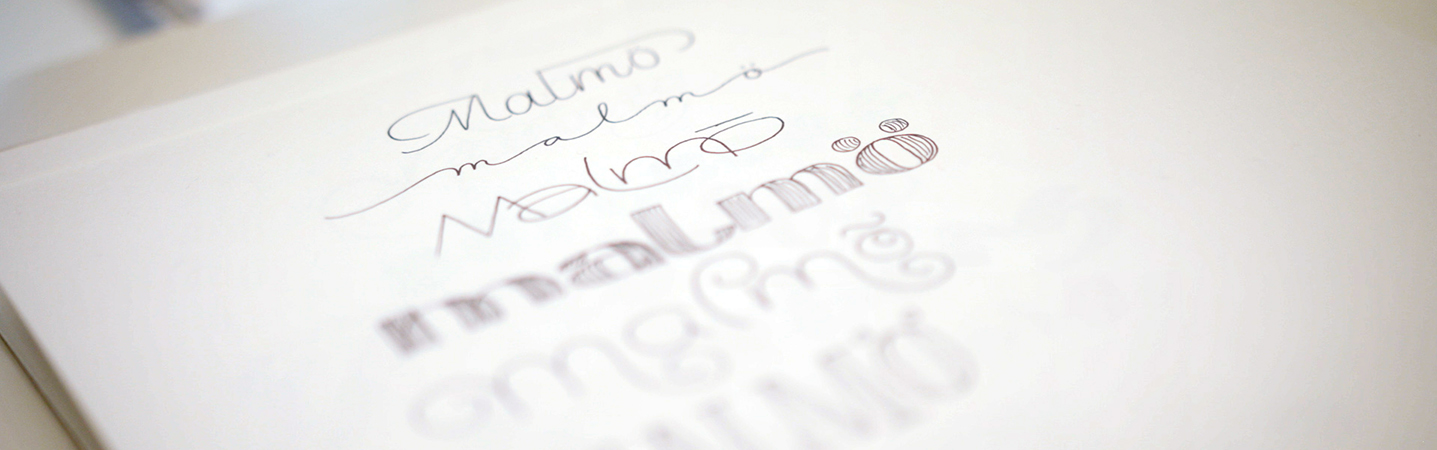 Malmö
malmö
Malmō
malmö
malmö
MALMÖ